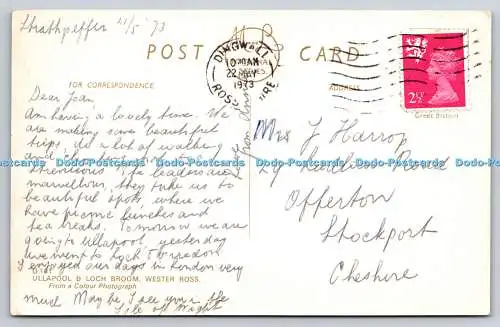 Strathpeffer 21/5 '73
POST CARD
DINGWALL
10 30 AM
22
1973
ROSS
FOR CORRESPONDENCE
ADDRESS
2½
Great Britain
Dear Joan,
Am having a lovely time. We
are making some beautiful
trips. A lot of walking
strenuous. The leaders are
marvellous, they take us to
beautiful spots, where we
have picnic lunches and
tea breaks. Tomorrow we are
going to Ullapool, yesterday
we went to Loch Torridon
I enjoyed our days in
very
ULLAPOOL & LOCH BROOM, WESTER ROSS.
From a Colour Photograph
much Maybe I see you in the
Isle of Wight
from
Mrs J Harrop
29 Road
Offerton
Stockport
Cheshire
Dodo-Postcards Dodo-Postcards Dodo-Postcards Dodo-Postcards